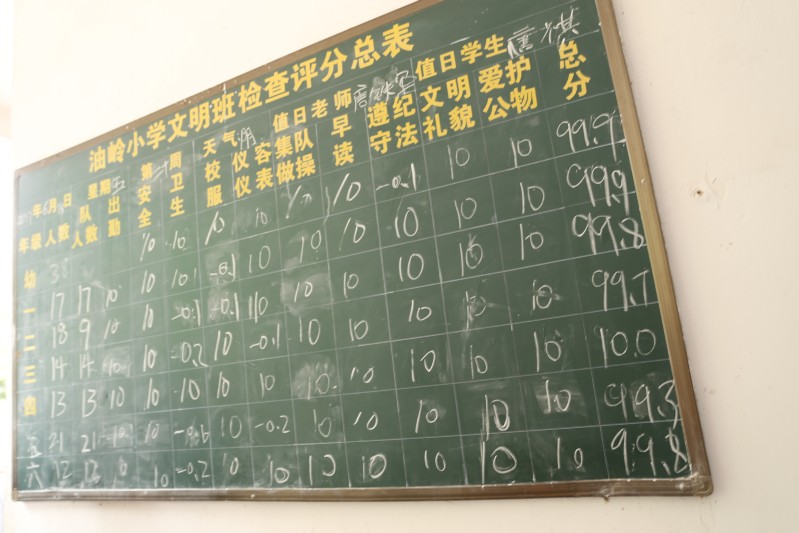 油岭小学文明班检查评分总表
年6月8日 星期五 第二十周 天气晴 值日老师 值日学生
年级 人数 队人数 出勤 安全 卫生 校服 仪容仪表 集队做操 早读 遵守纪法 文明礼貌 爱护公物 总分
幼 38 10 10 10 10 10 10 -0.1 10 10 99.9
一 17 17 10 10 10 -0.1 10 10 10 10 10 10 99.9
二 18 9 10 10 -0.1 -0.1 10 10 10 10 10 10 99.8
三 14 14 10 10 -0.2 10 -0.1 10 10 10 10 10 99.7
四 13 13 10 10 10 10 10 10 10 10 10 10 10.0
五 21 21 10 10 10 -0.2 10 10 10 10 10 99.3
六 12 12 10 10 -0.2 10 10 10 10 10 10 10 99.8